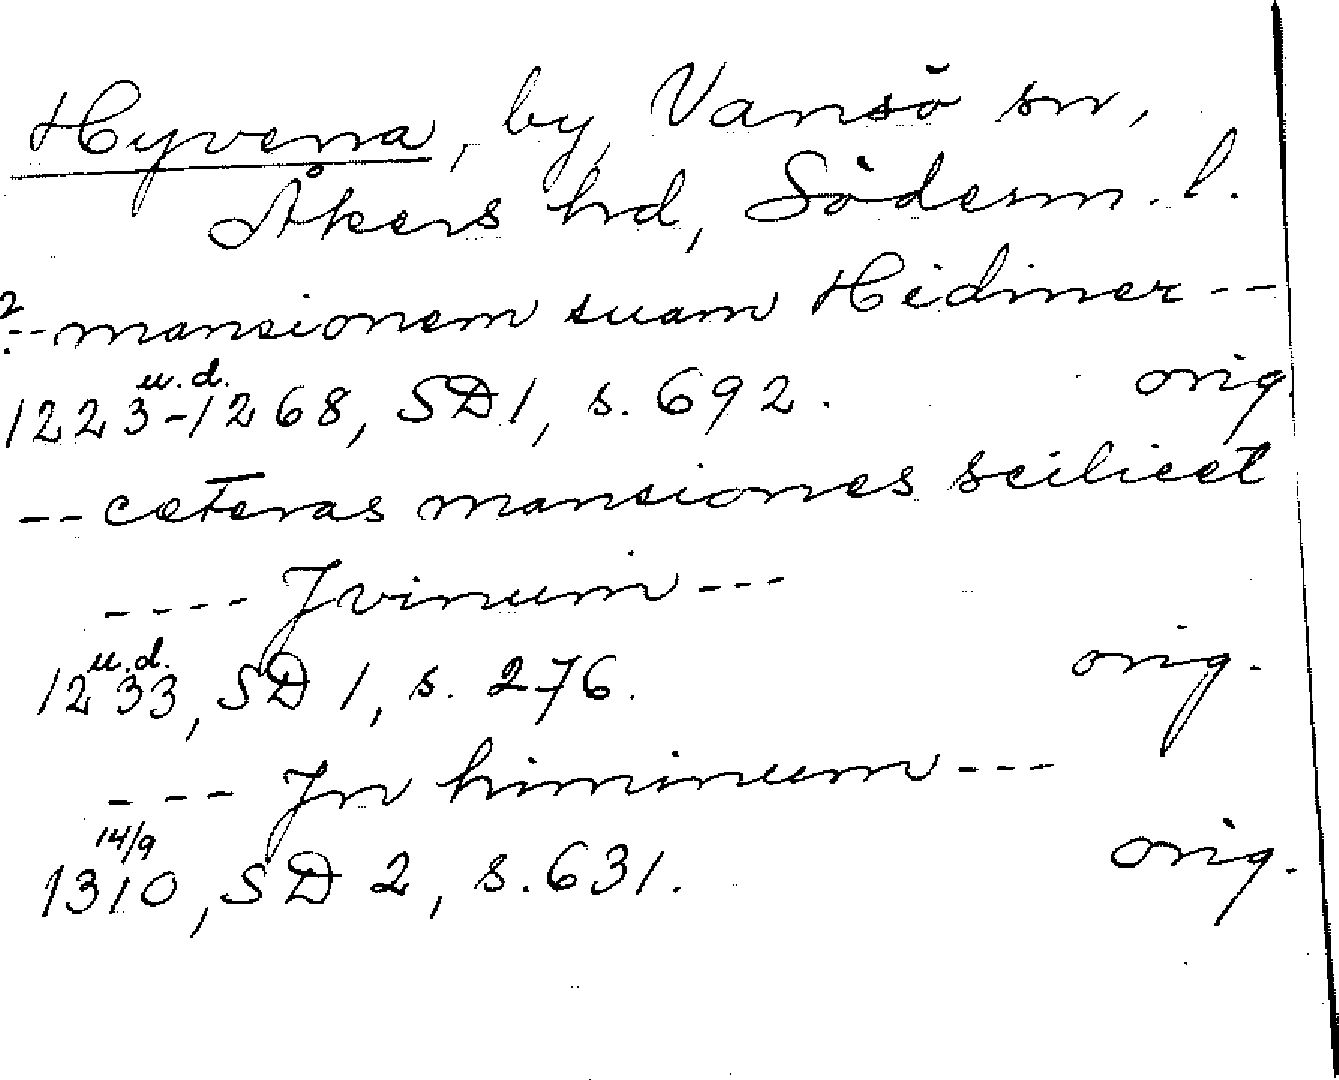 Hyvena, by, Vansö sn,
Åkers hd, Söderm. l.
?--mansionem suam Hidiner--
u.d.
1223-1268, SD 1, s. 692. orig.
--ceteras mansiones scilicet
----Jvinum---
u.d.
1233, SD 1, s. 276. orig.
---Jn himinum---
14/9
1310, SD 2, s. 631. orig.